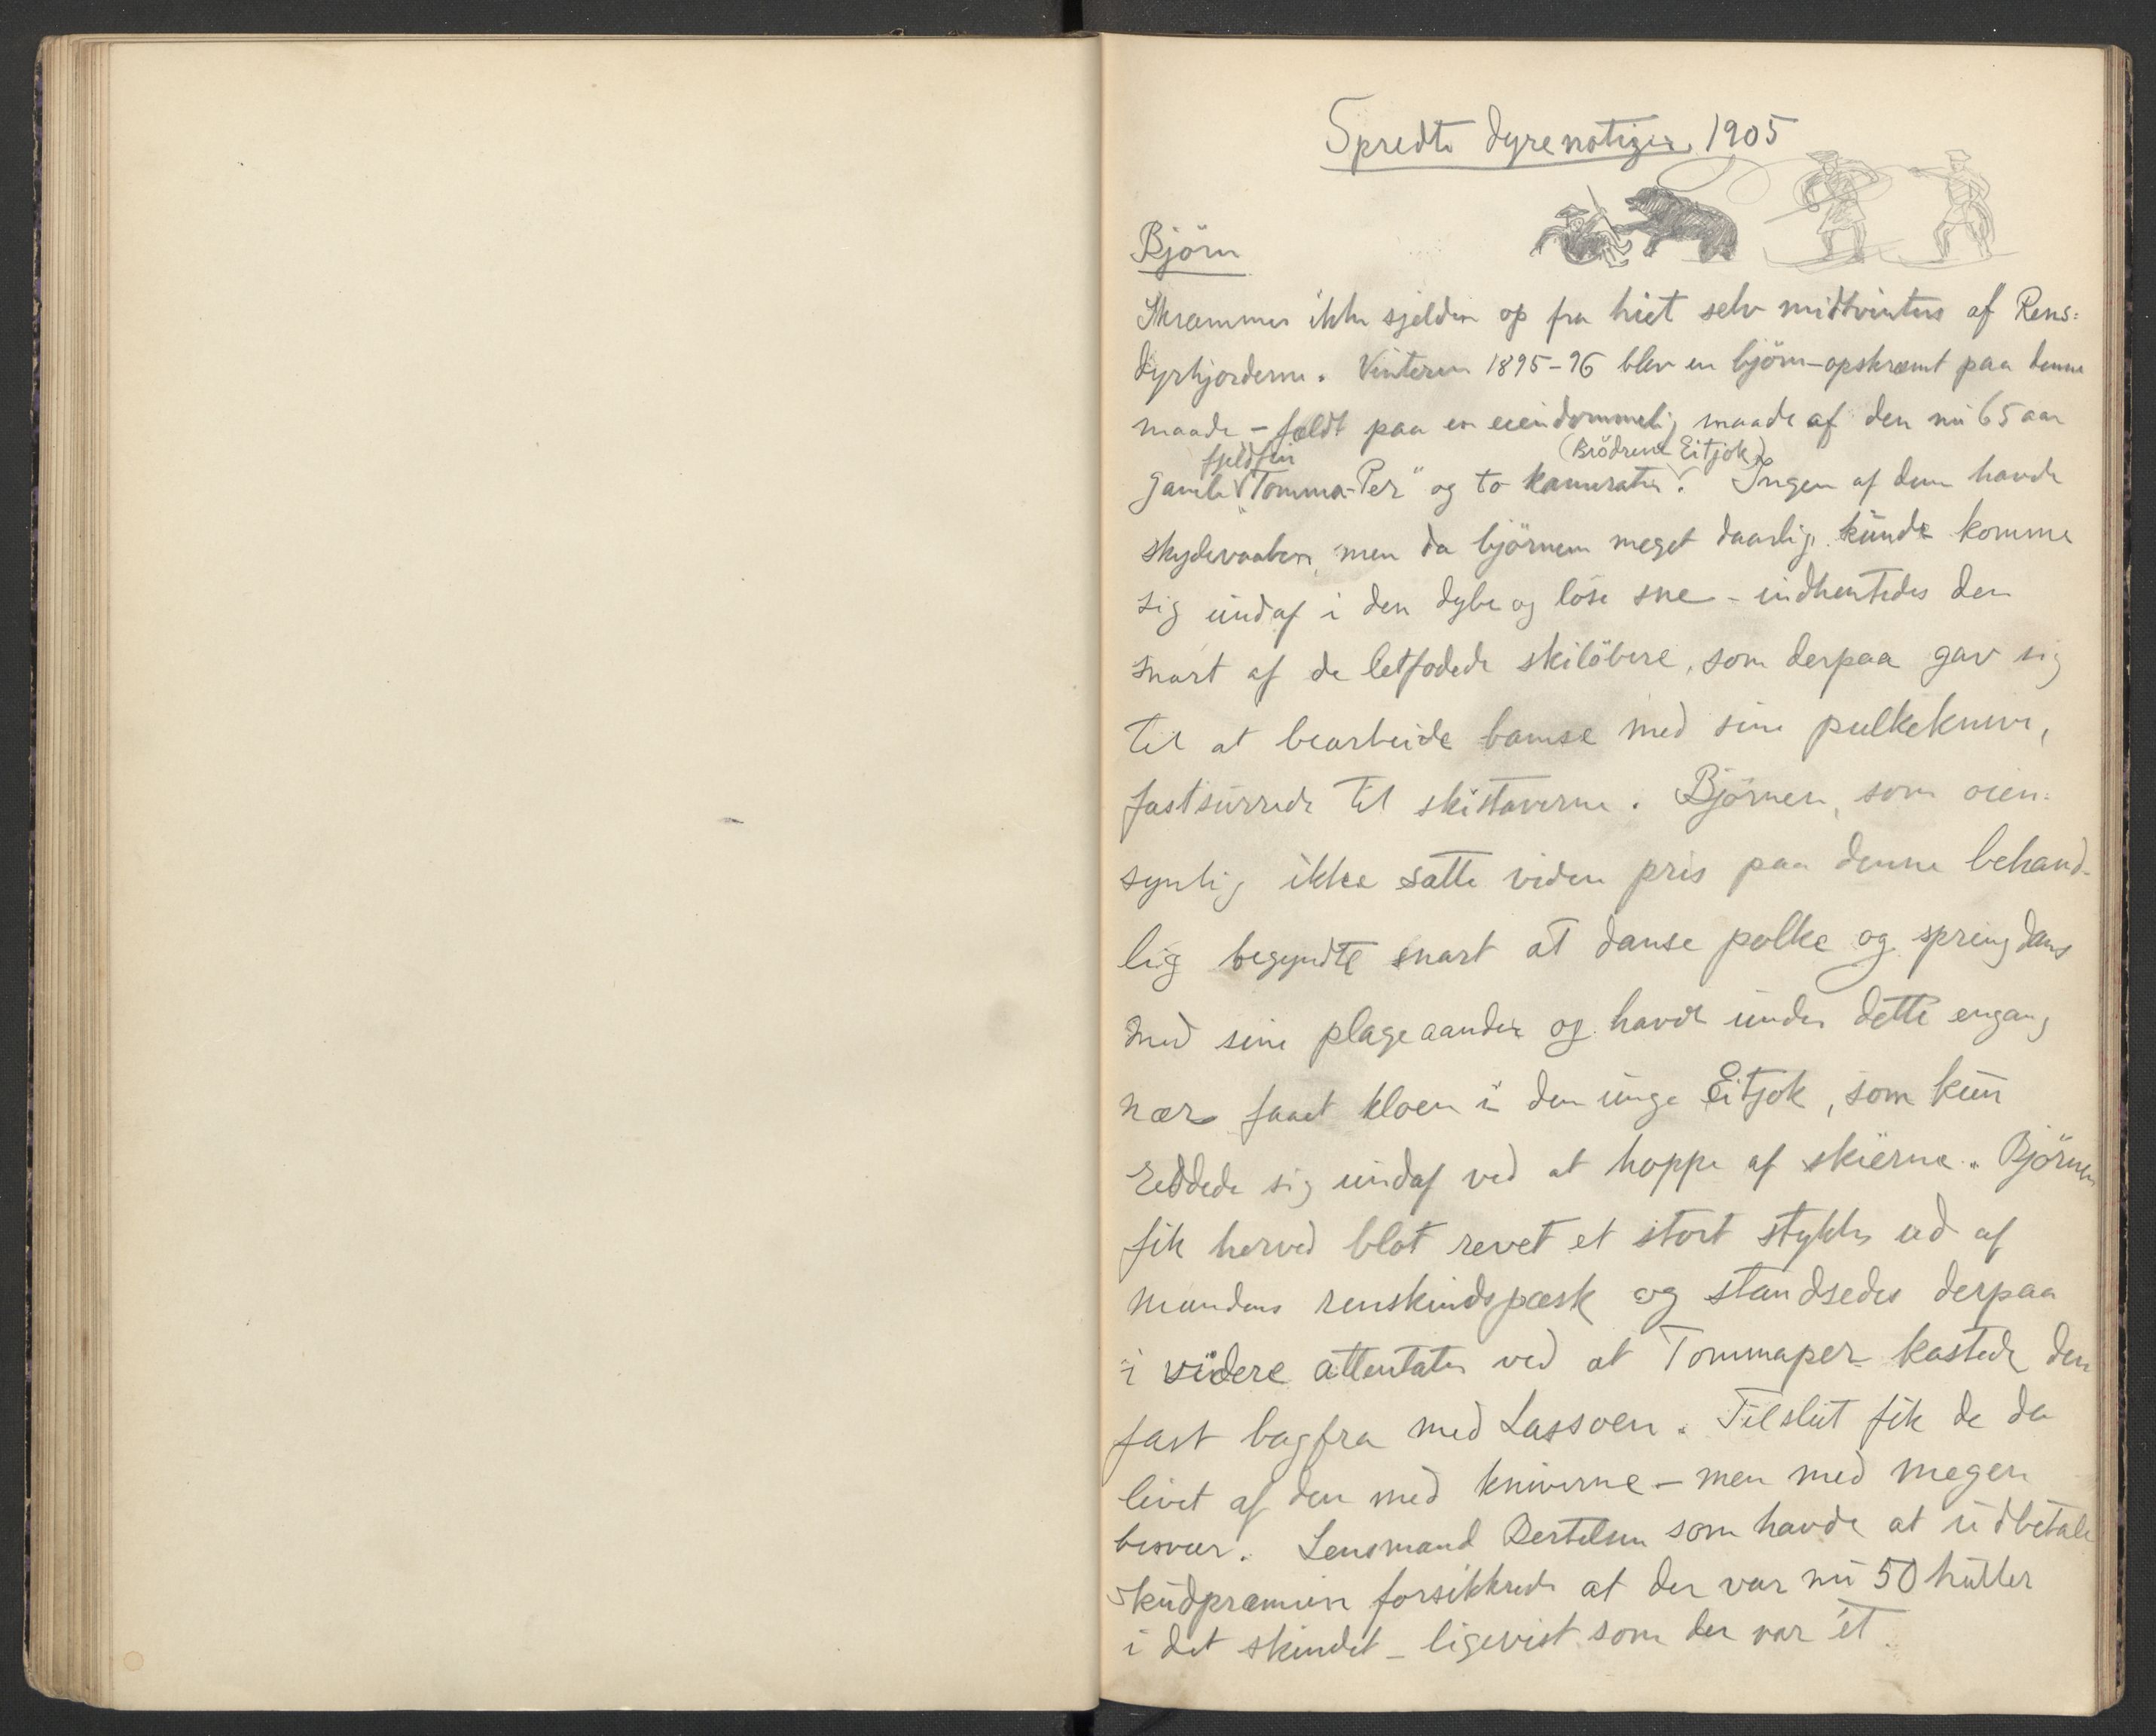 Spredte dyrenotizer, 1905
Björn
Skræmmes ikke sjelden op fra hiet selv midtvinters af Rens=
dyrhjorderne. Vinteren 1895-96 blev en björn-opskræmt paa denne
maade - fældt paa en eiendommelig maade af den nu 65 aar
fjeldfin (Brödrene Eitjok)
gamle "Tomma-Per" og to kamerater. Ingen af dem havde
skydevaaben, men da björnen meget daarlig kunde komme
sig undaf i den dybe og löse sne - indhentedes den
snart af de letfodede skilöbere, som derpaa gav sig
til at bearbeide bamse med sine pulkeknive,
fastsurrede til skistaverne. Björnen, som oien-
synlig ikke satte viden pris paa denne behand-
lig begyndte snart at danse polke og springdans
med sine plageaander og havde under dette engang
nær faaet kloen i den unge Eitjok, som kun
reddede sig undaf ved at hoppe af skierne. Björnen
fik herved blot revet et stort stykke ud af
mandens renskindspæsk og standsedes derpaa
i videre attentater ved at Tommaper kastede den
fast bagfra med Lassoen. Tilslut fik de da
livet af den med kniverne - men med megen
besvær. Lensmand Bertelsen som havde at udbetale
skudpræmien forsikkrede at der var nu 50 huller
i det skindet - ligevist som der var ét.